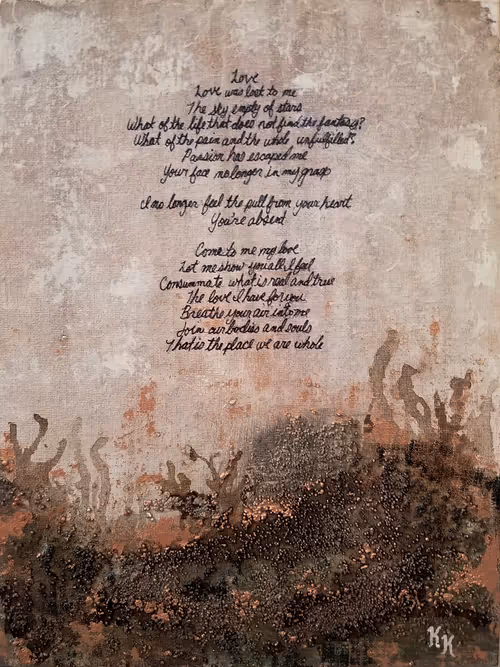 Love
Love was lost to me
The sky empty of stars
What of the life that does not find the fantasy?
What of the pain and the whole unfulfilled?
Passion has escaped me
Your face no longer in my grasp
I no longer feel the pull from your heart
You're absent
Come to me my love
Let me show you all I feel
Consummate what is real and true
The love I have for you
Breathe your air into me
Join our bodies and souls
That is the place we are whole
KK